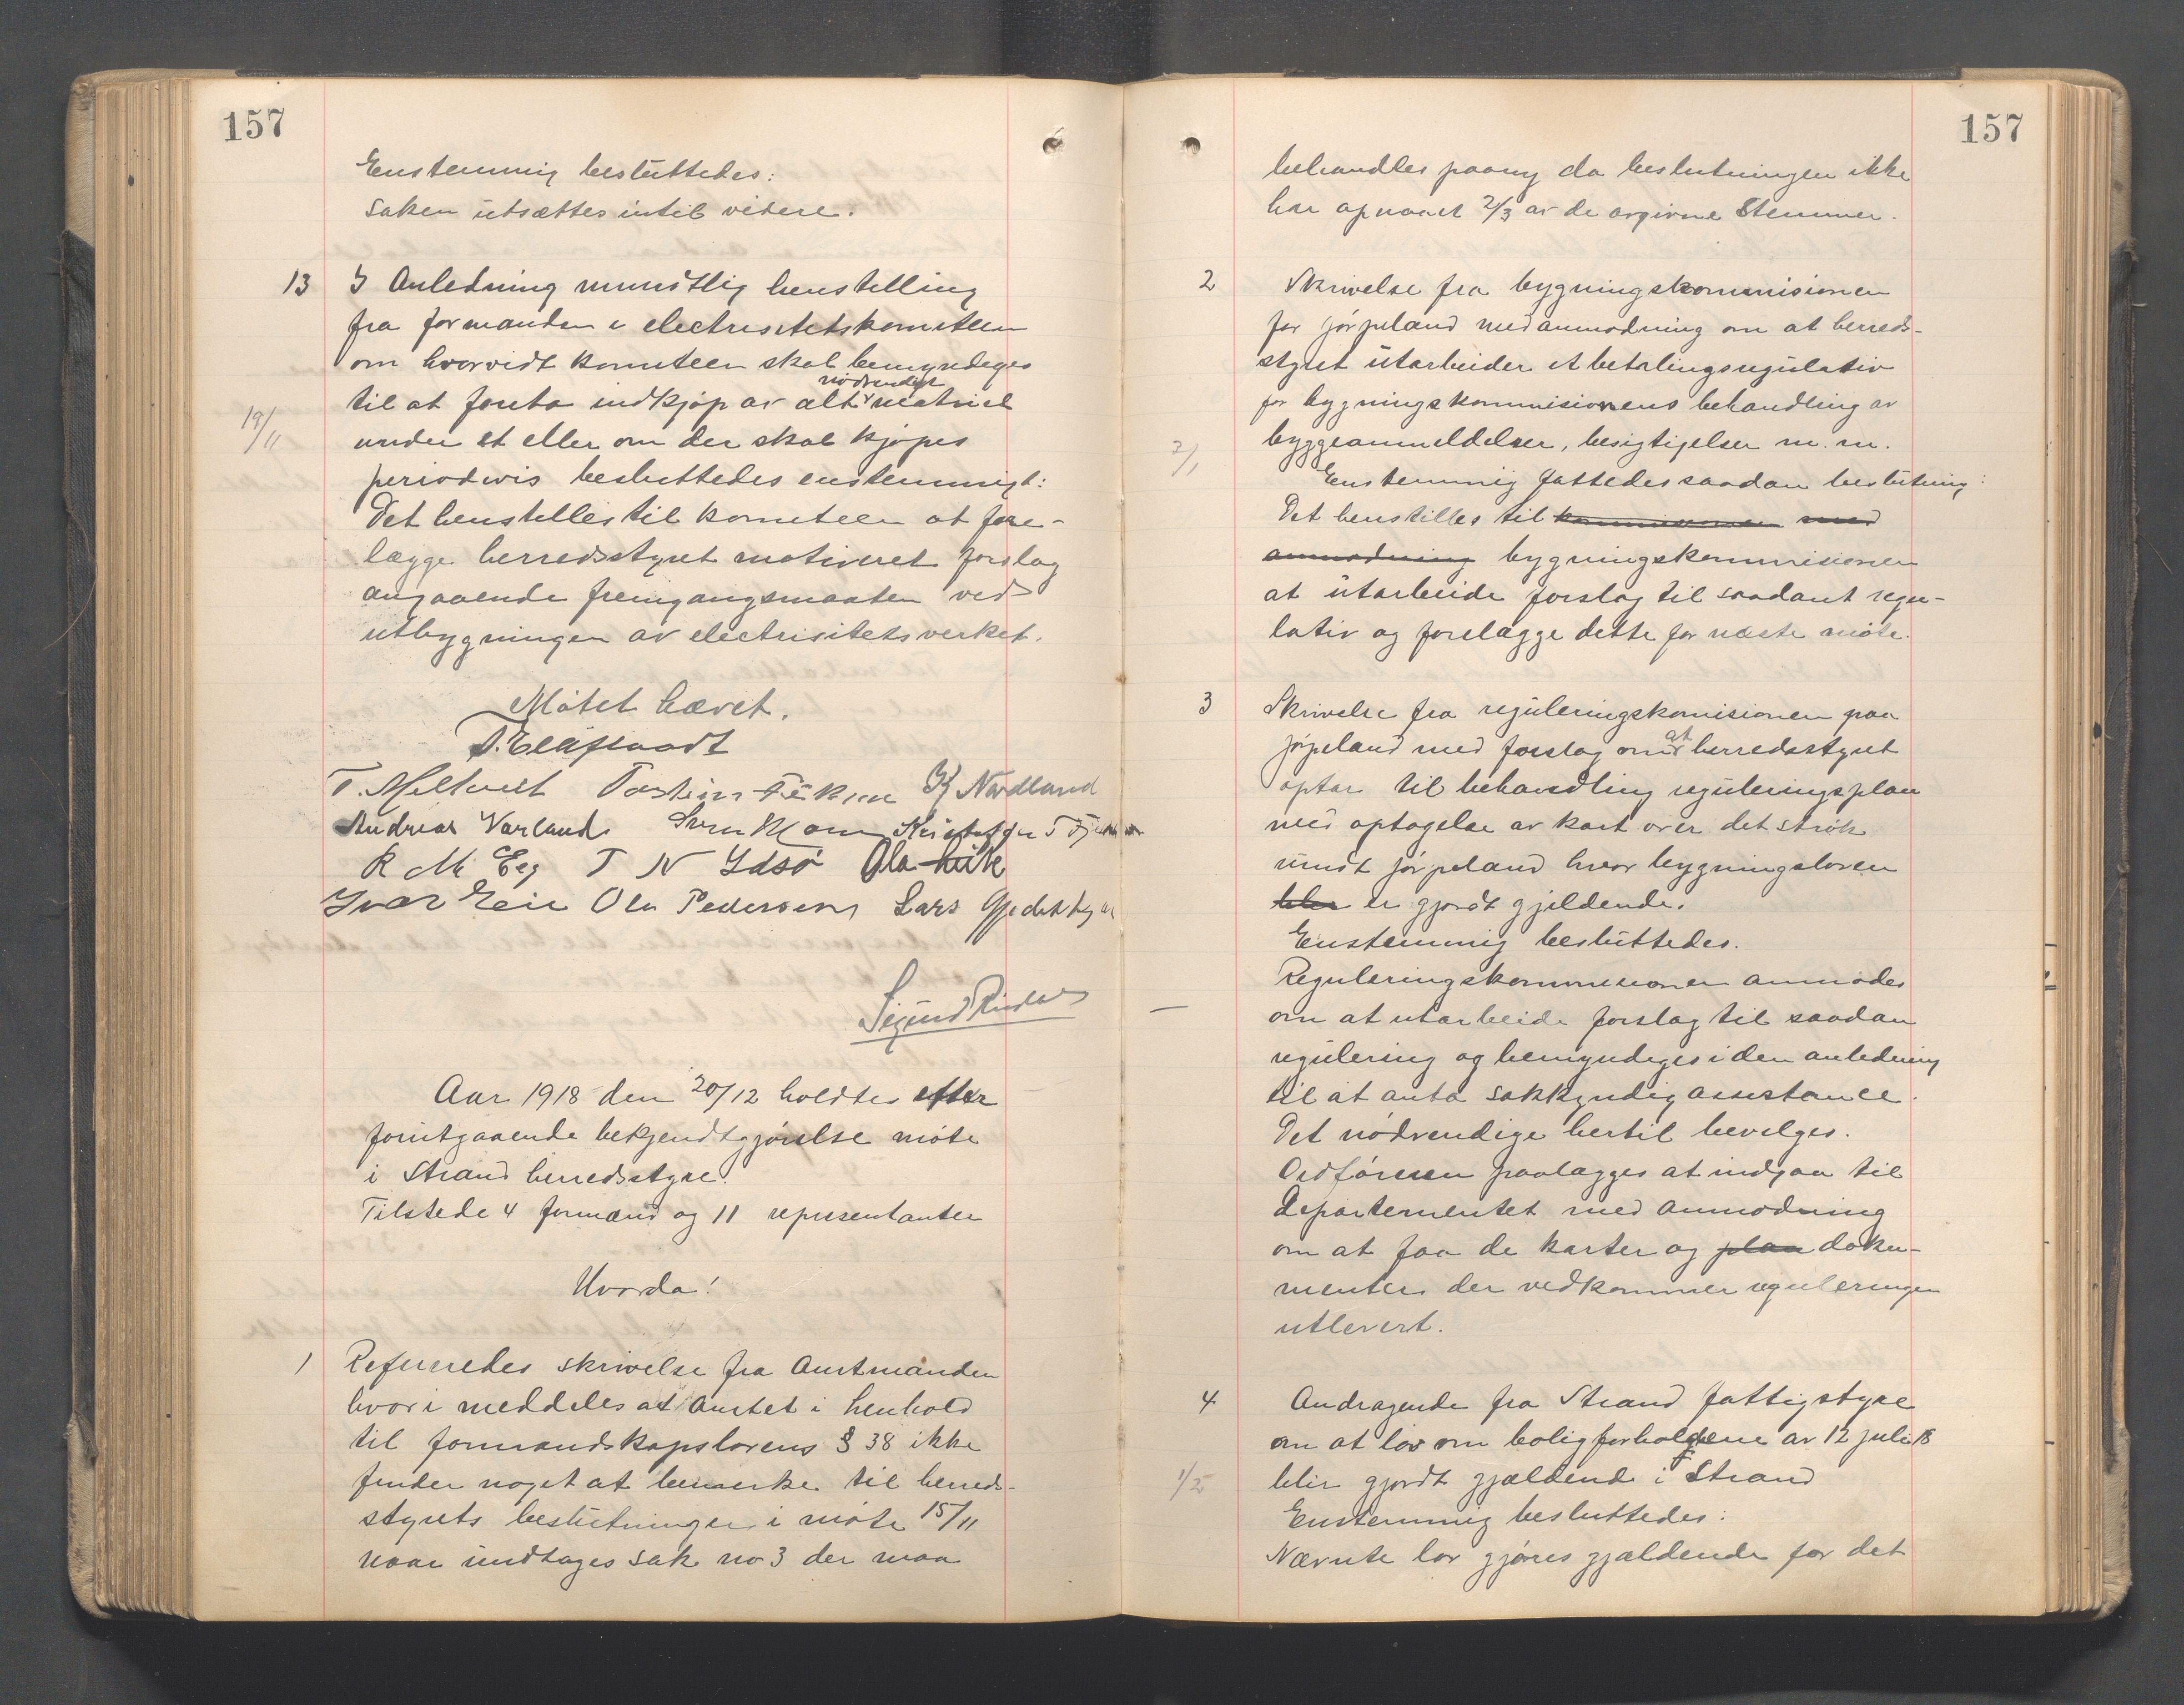 157
Enstemmig besluttedes:
Saken utsættes intil videre.
13 I Anledning mundtlig henstilling
fra formanden i electrisitetskomiteen
om hvorvidt komiteen skal bemyndeges
nødvendigt
til at foreta indkjøp av alt matriel
19/11 under et eller om der skal kjøpes
periodevis besluttedes enstemmigt:
Det henstilles til komiteen at fore-
lægge herredsstyret motiveret forslag
angaaende fremgangsmaaten ved
utbygningen av electrisitetsverket.
Møtet hævet.
T. Meltveit Torstein Fiskum K Nordland
Andreas Varland Kristoffer
R M Eeg T N Idsø Ola
Ivar Eeie Ola Pedersens Lars
Sigurd
Aar 1918 den 20/12 holdtes efter
forutgaaende bekjendtgjørelse møte
i Strand herredsstyre.
Tilstede 4 formænd og 11 representanter
Hvorda!
1 Refereredes skrivelse fra Amtmanden
hvori meddeles at Amtet i henhold
til formandskapslovens § 38 ikke
finder noget at bemerke til herreds-
styrets beslutninger i møte 15/11
naar undtages sak no 3 der maa
157
behandles paany da beslutningen ikke
har opnaaet 2/3 av de avgivne Stemmer.
2 Skrivelse fra bygningskommisionen
for Jørpeland med anmodning om at herreds-
styret utarbeider et betalingsregulativ
for bygningskommisionens behandling av
2/1 byggeanmeldelser, besigtigelser m. m.
Enstemmig fattedes saadan beslutning:
Det henstilles til kommisionen med
anmodning bygningskommisionen
at utarbeide forslag til saadant regu-
lativ og forelægge dette for næste møte.
3 Skrivelse fra reguleringskomisionen paa
Jørpeland med forslag om at herredsstyret
optar til behandling reguleringsplan
med optagelse av kart over det strøk
rundt Jørpeland hvor bygningsloven
blir er gjordt gjeldende.
Enstemmig besluttedes.
Reguleringskommisionen anmodes
om at utarbeide forslag til saadan
regulering og bemyndiges i den anledning
til at anta sakkyndig assistance.
Det nødvendige hertil bevilges.
Ordføreren paalægges at indgaa til
Departementet med anmodning
om at faa de karter og plan doku-
menter der vedkommer reguleringen
utlevert.
4 Andragende fra Strand fattigstyre
om at lov om boligforholdene av 12 juli 18
1/5 blir gjordt gjældende i Strand
Enstemmig besluttedes:
Nævnte lov gjøres gjældende for det